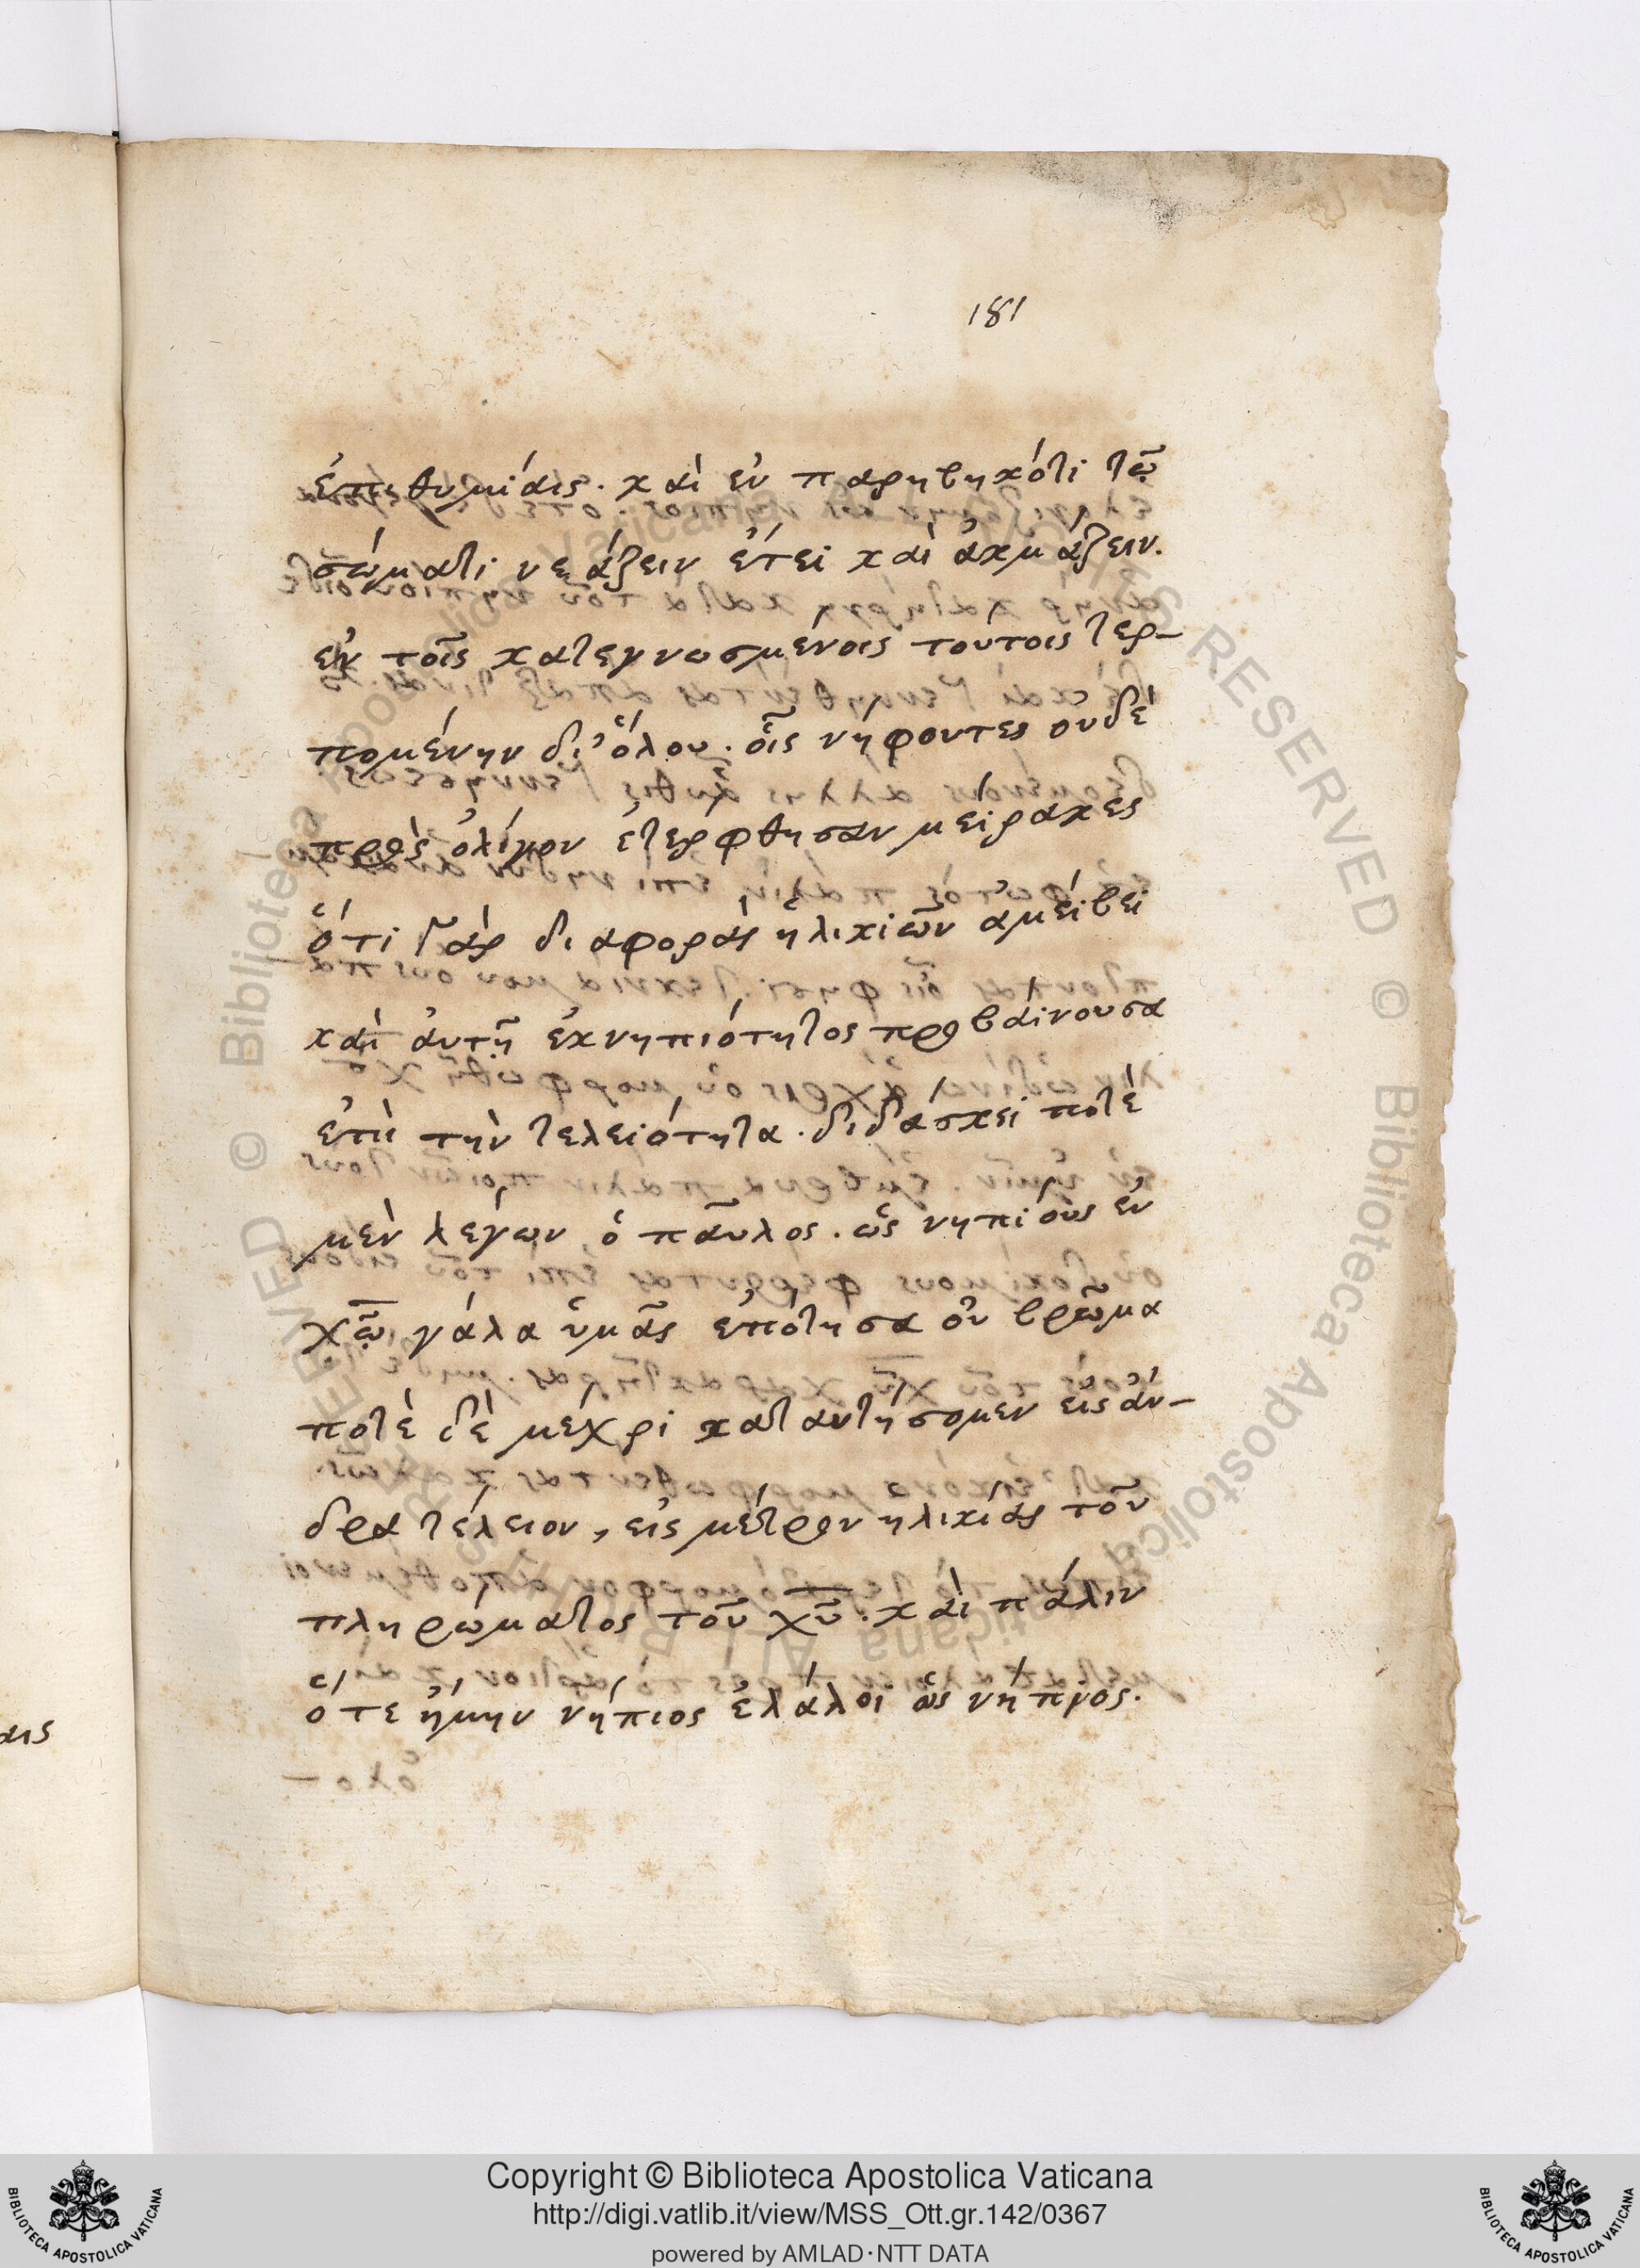 181
ἐπιθυμίαις. καὶ ἐν παρηβηκότι τῶ
σώματι νεάζειν ἔτει καὶ ἀκμάζειν.
ἐν τοῖς κατεγνωσμένοις τούτοις τερ-
πομένην δι' ὅλου. οἷς νήφοντες οὐδὲ
πρὸς ὀλίγον ἐτέρφθησαν μείρακες
ὅτι γὰρ διαφορὰς ἡλικιῶν ἀμείβει
καὶ ἀυτὴ ἐκ νηπιότητος προβαίνουσα
ἐπὶ τὴν τελειότητα. διδάσκει ποτὲ
μὲν λέγων ὁ παῦλος. ὡς νηπίους ἐν
χῶ γάλα ὑμᾶς ἐπότησα οὐ βρῶμα
ποτὲ δὲ μέχρι καταντήσομεν εἰς ἄν-
δρα τέλειον, εἰς μέτρον ἡλικίας τοῦ
πληρώματος τοῦ χῦ. καὶ πάλιν
ὅτε ἤμην νήπιος ἐλάλοι ὡς νήπιος.
αις
Copyright © Biblioteca Apostolica Vaticana
http://digi.vatlib.it/view/MSS_Ott.gr.142/0367
powered by AMLAD·NTT DATA
BIBLIOTECA APOSTOLICA VATICANA
BIBLIOTECA APOSTOLICA VATICANA